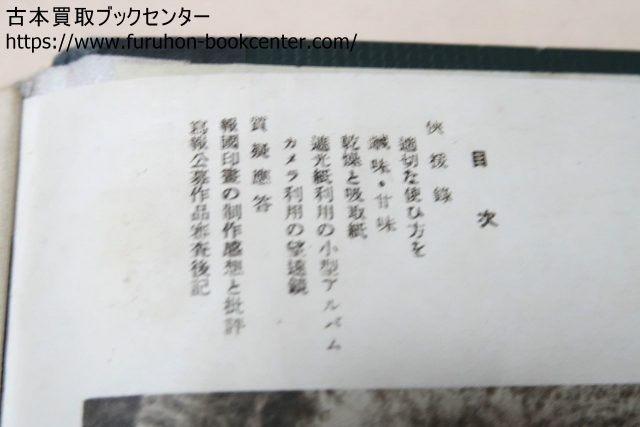 古本買取ブックセンター
https://www.furuhon-bookcenter.com/
目次
俠援錄
適切な使ひ方を
鹹味・甘味
乾燥と吸取紙
遮光紙利用の小型アルバム
カメラ利用の望遠鏡
質疑應答
報國印畫の制作感想と批評
寫報公募作品審査後記